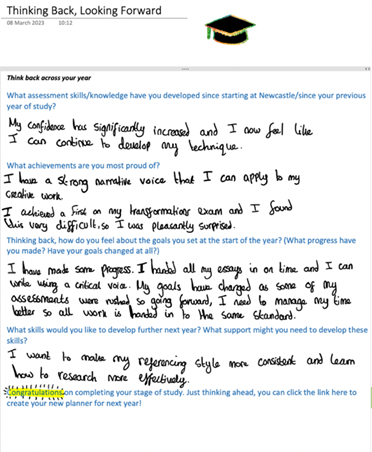 Thinking Back, Looking Forward
08 March 2023 10:12
Think back across your year
What assessment skills/knowledge have you developed since starting at Newcastle/since your previous
year of study?
My confidence has significantly increased and I now feel like
I can continue to develop my technique.
What achievements are you most proud of?
I have a strong narrative voice that I can apply to my
creative work
I achieved a First on my transformations exam and I found
this very difficult, so I was pleasantly surprised.
Thinking back, how do you feel about the goals you set at the start of the year? (What progress have
you made? Have your goals changed at all?)
I have made some progress. I handed all my essays in on time and I can
write using a critical voice. My goals have changed as some of my
assessments were rushed so going forward, I need to manage my time
better so all work is handed in to the same standard.
What skills would you like to develop further next year? What support might you need to develop these
skills?
I want to make my referencing style more consistent and learn
how to research more effectively.
Congratulations on completing your stage of study. Just thinking ahead, you can click the link here to
create your new planner for next year!